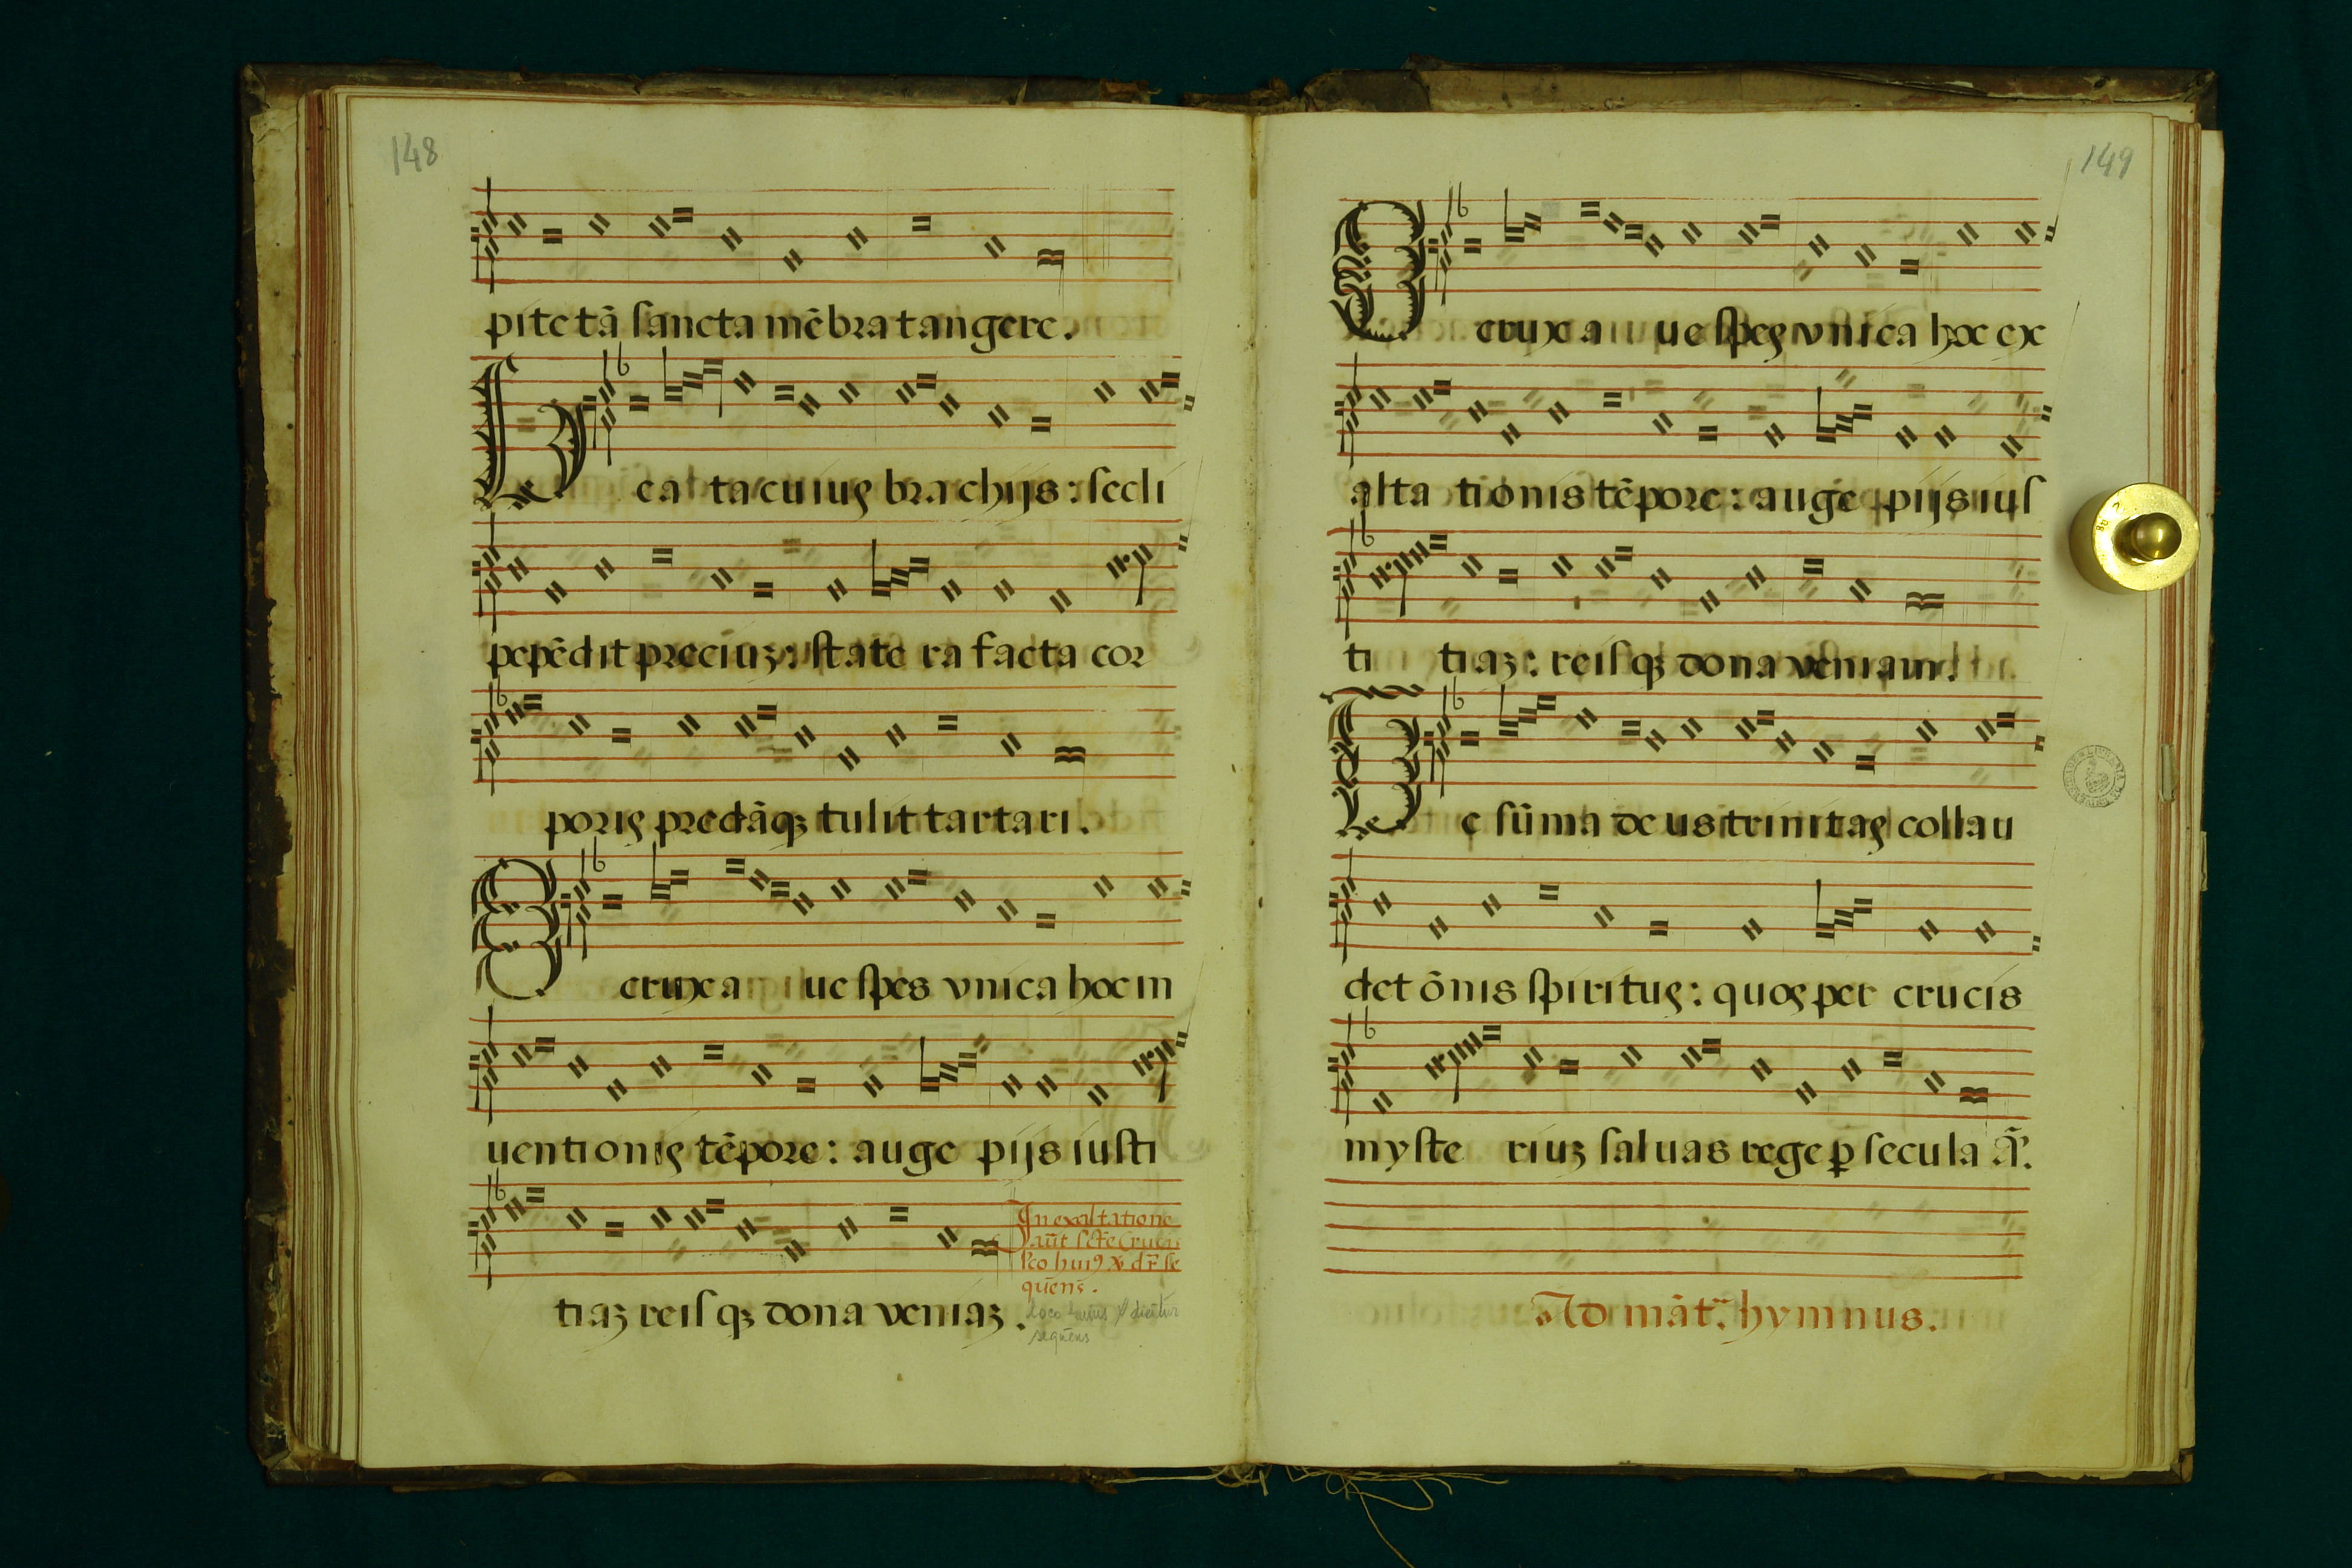 148
pite tā sancta mēbra tangere.
Beata cuius brachijs: secli
pepēdit preciuz: state ra facta cor
poris predāqz tulit tartari.
O crux a ue spes vnica hoc in
uentionis tēpore: auge pijs iusti
In exaltatione
aūt scte Crucis
lco hui9 v dr se
quens.
tiaz reisqz dona veniaz.
sequens
149
O crux a ue spes vnica hoc ex
alta tionis tēpore: auge pijs ius
ti tiaz: reisqz dona veniam.
Te sūma deus trinitas collau
det ōnis spiritus: quos per crucis
myste riuz saluas rege p secula A.
Ad māt. hymnus.